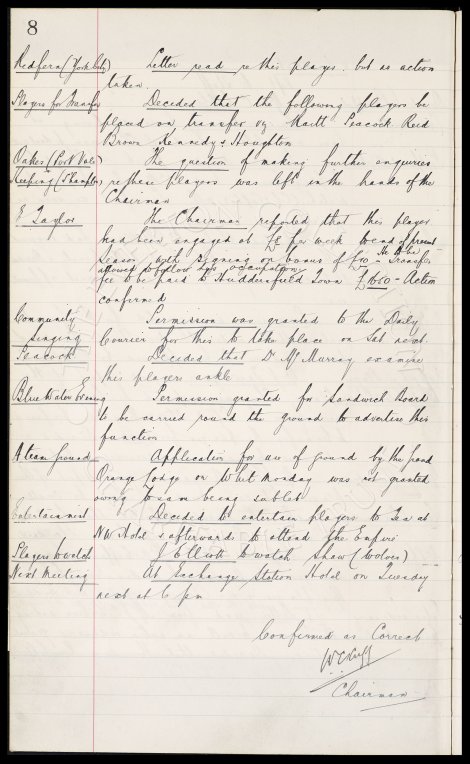 8
Redfern (York City) Letter read re this player. but no action
taken.
Players for Transfer Decided that the following players be
placed on transfer viz Raitt Peacock Reid
Brown Kennedy & Houghton
Oakes (Port Vale) The question of making further enquiries
Keeping (S'hampton) re these players was left in the hands of the
Chairman
E Taylor The Chairman reported that this player
had been engaged at £8 per week to end of present
season with signing on bonus of £10 - Transfer
He to be
allowed to follow his occupation
fee to be paid to Huddersfield Town £1650 - Action
confirmed
Community Permission was granted to the Daily
Singing Courier for this to take place on Sat next.
Peacock Decided that Dr McMurray examine
this players ankle
Blue Water Evening Permission granted for Sandwich Board
to be carried round the ground to advertise this
function
A team ground Application for use of ground by the Grand
Orange Lodge on Whit Monday was not granted
owing to same being sublet
Entertainment Decided to entertain players to Tea at
NW Hotel & afterwards to attend the Empire
Players to watch J Elliott to watch Shaw (Wolves)
Next Meeting At Exchange Station Hotel on Tuesday
next at 6 pm
Confirmed as Correct
W C Cuff
Chairman